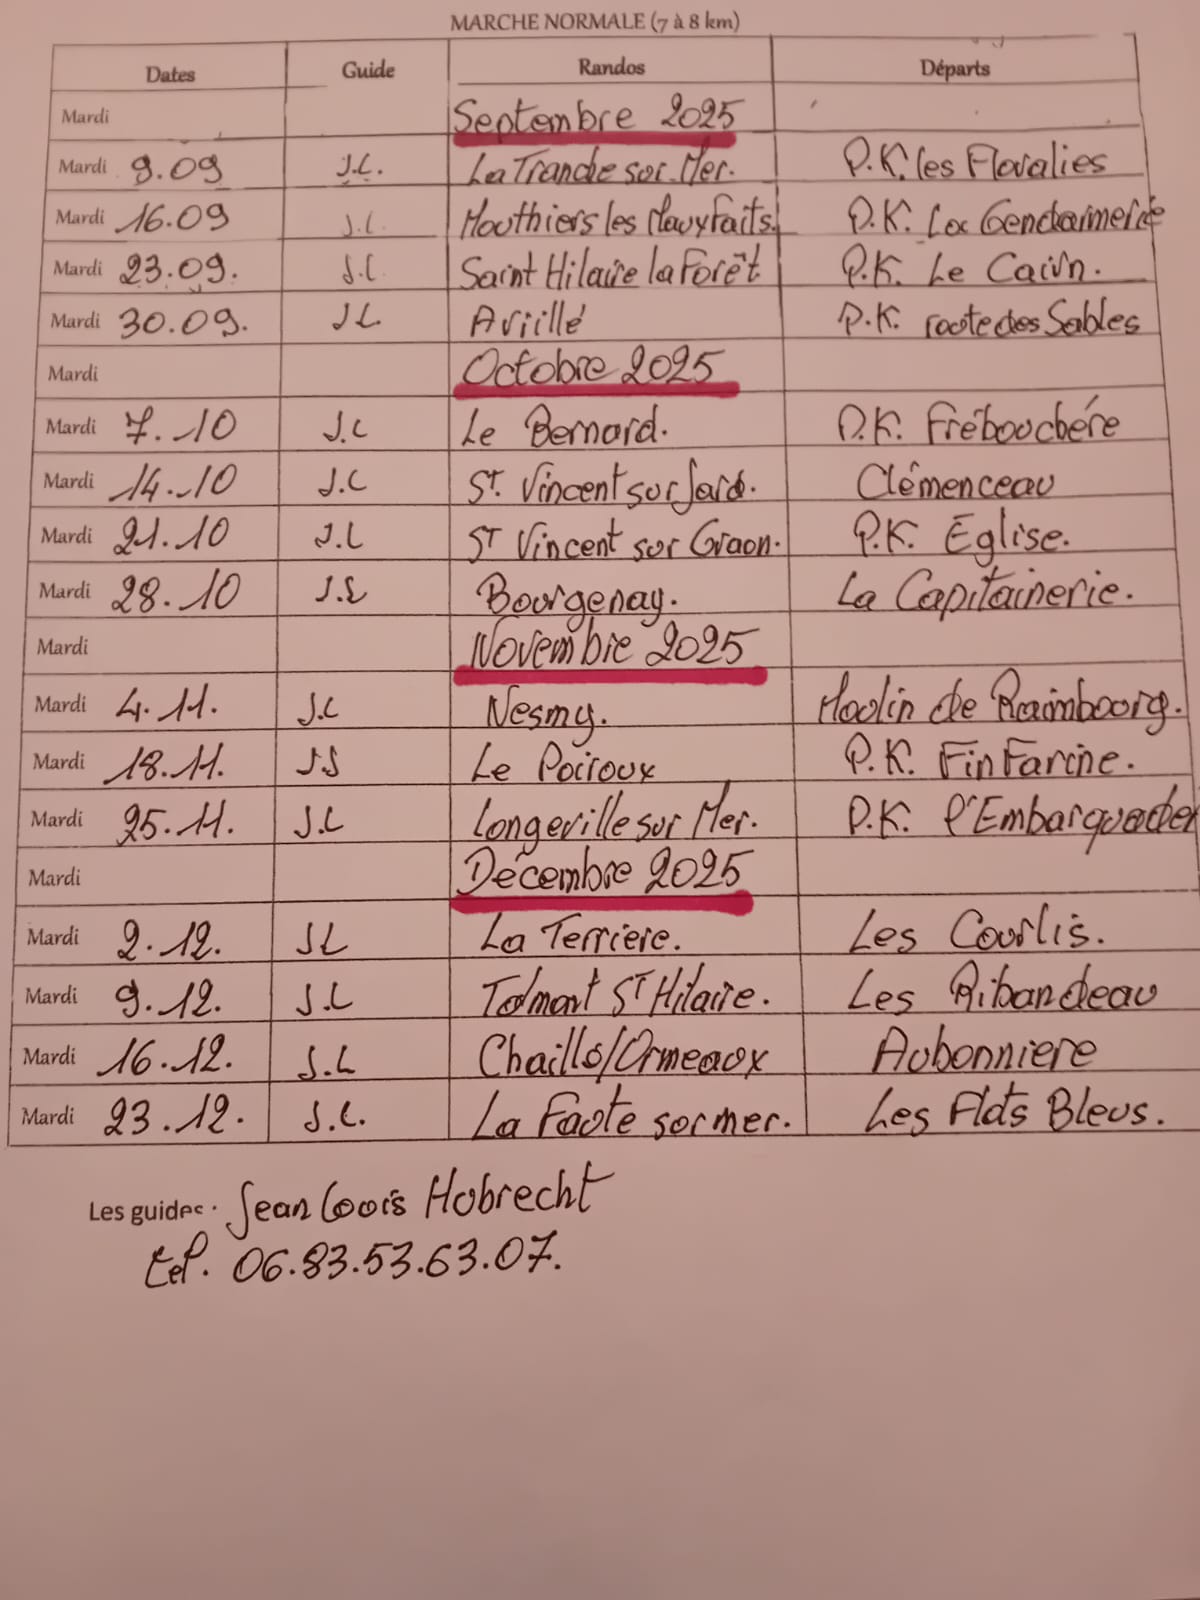 MARCHE NORMALE (7 à 8 km)
Dates Guide Randos Départs
Mardi Septembre 2025
Mardi 9.09 J.L. La Tranche sur Mer. P.K. les Floralies
Mardi 16.09 J.L. Mouthiers les Mauxfaits. P.K. La Gendarmerie
Mardi 23.09. J.L Saint Hilaire la Forêt P.K. Le Cairn.
Mardi 30.09. J L. Avrillé P.K. route des Sables
Mardi Octobre 2025
Mardi 7.10 J.L Le Bernard. P.K. Frébouchère
Mardi 14.10 J.L St. Vincent sur Jard. Clémenceau
Mardi 21.10 J.L St Vincent sur Graon. P.K. Eglise.
Mardi 28.10 J.L Bourgenay. La Capitainerie.
Mardi Novembre 2025
Mardi 4.11. J.L Nesmy. Moulin de Raimbourg.
Mardi 18.11. J.J Le Poiroux P.K. FinFarine.
Mardi 25.11. J.L Longeville sur Mer. P.K. l'Embarquader
Mardi Décembre 2025
Mardi 2.12. J L La Terriere. Les Courlis.
Mardi 9.12. J.L Talmont St Hilaire. Les Ribandeau
Mardi 16.12. J.L Chaillo/Ormeaux Aubonniere
Mardi 23.12. J.L. La Faute sur mer. Les Flots Bleus.
Les guides. Jean Louis Hubrecht
tel. 06.83.53.63.07.